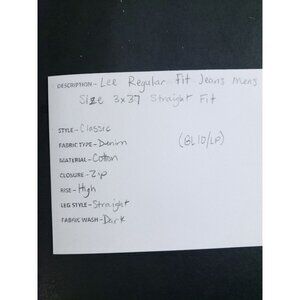 DESCRIPTION- Lee Regular Fit Jeans mens
Size 3x37 Straight Fit
STYLE- Classic
FABRIC TYPE- Denim (GL10/LP)
MATERIAL- Cotton
CLOSURE- Zip
RISE- High
LEG STYLE- Straight
FABRIC WASH- Dark